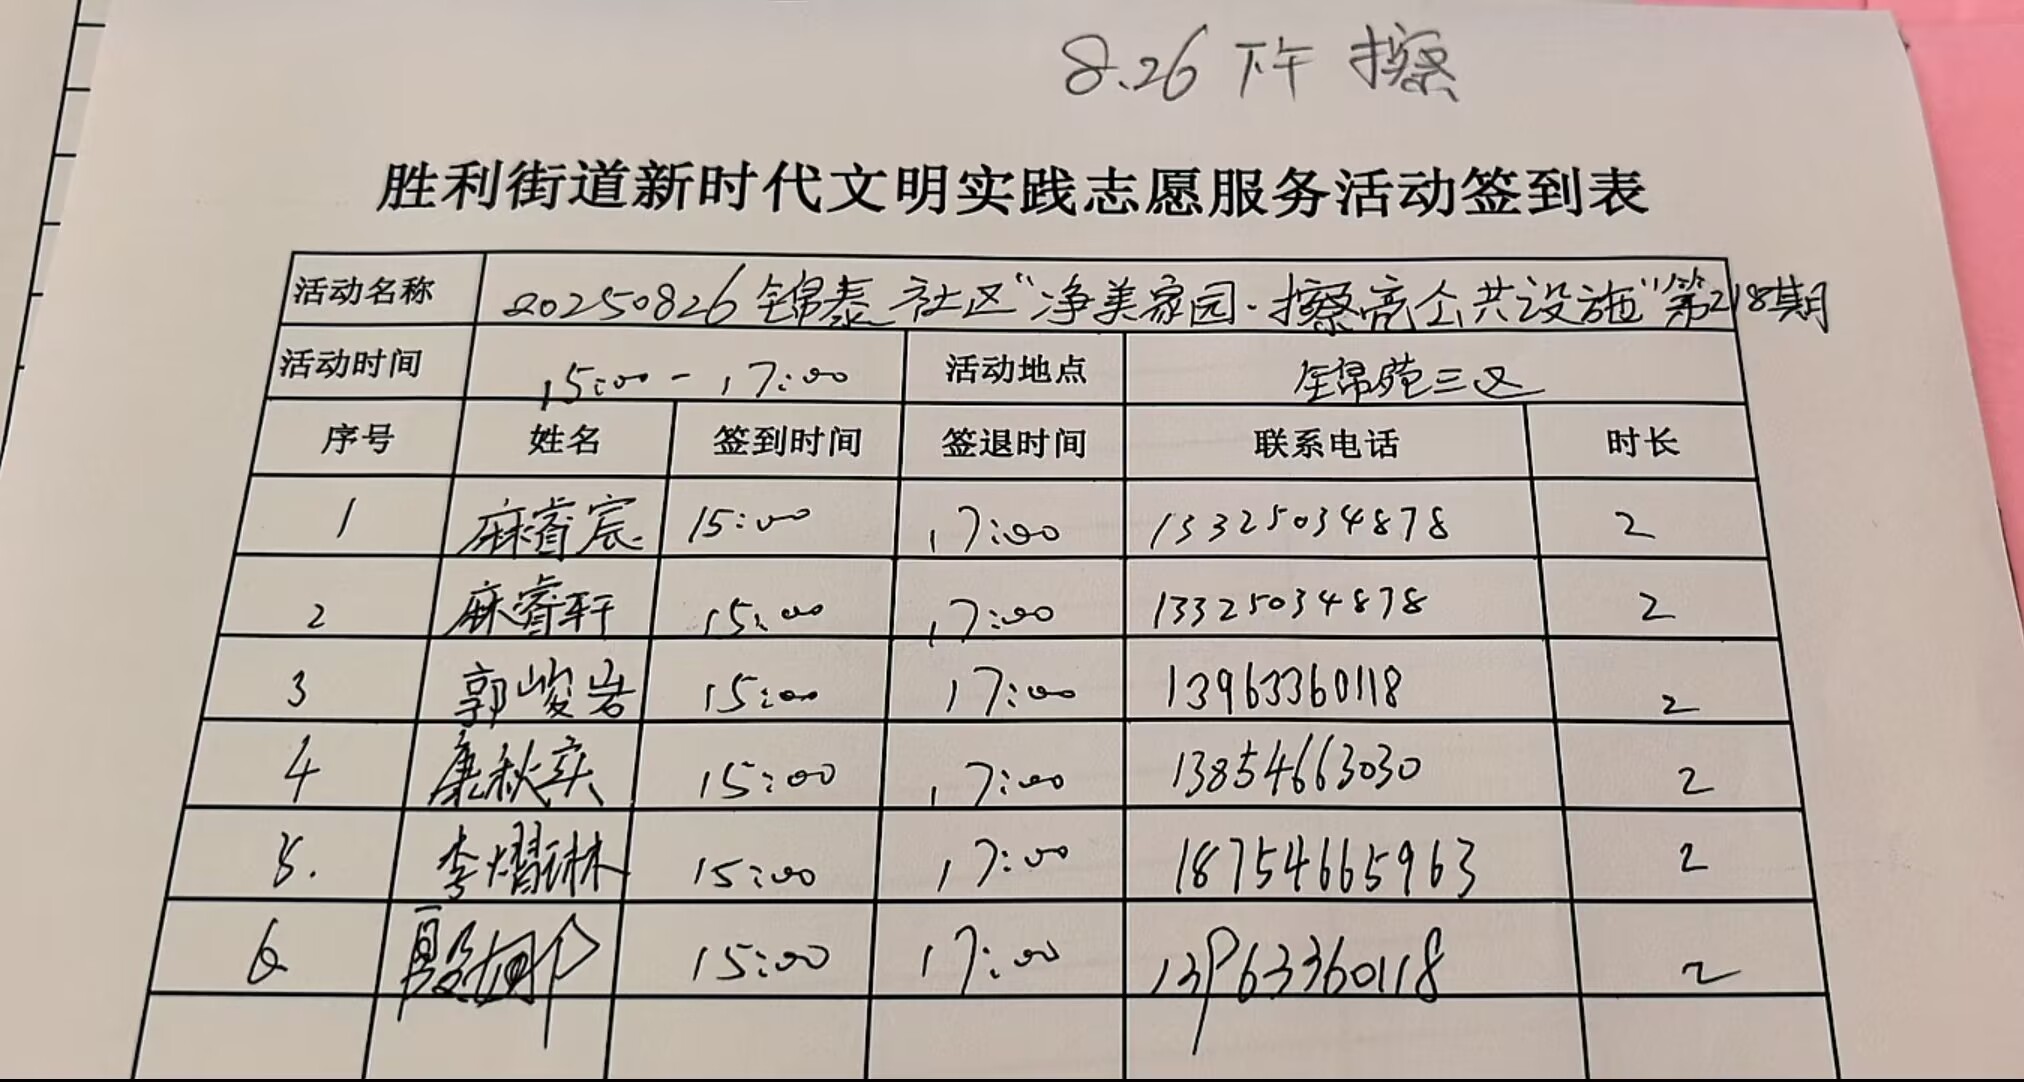 8.26 下午 擦
胜利街道新时代文明实践志愿服务活动签到表
活动名称 20250826锦泰社区"净美家园·擦亮公共设施"第218期
活动时间 15:00-17:00 活动地点 锦苑三区
序号 姓名 签到时间 签退时间 联系电话 时长
1 麻睿宸 15:00 17:00 13325034878 2
2 麻睿轩 15:00 17:00 13325034878 2
3 郭峻岩 15:00 17:00 13963360118 2
4 康秋实 15:00 17:00 13854663030 2
5. 李熠琳 15:00 17:00 18754665963 2
6 15:00 17:00 13963360118 2